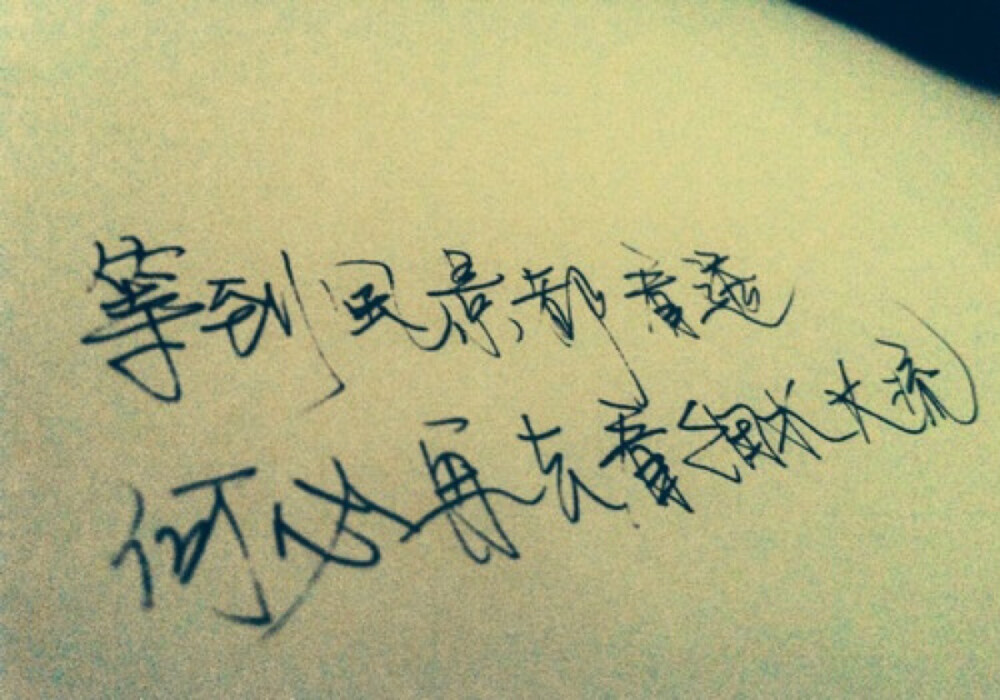 等到风景都看透
何必再去看细水长流